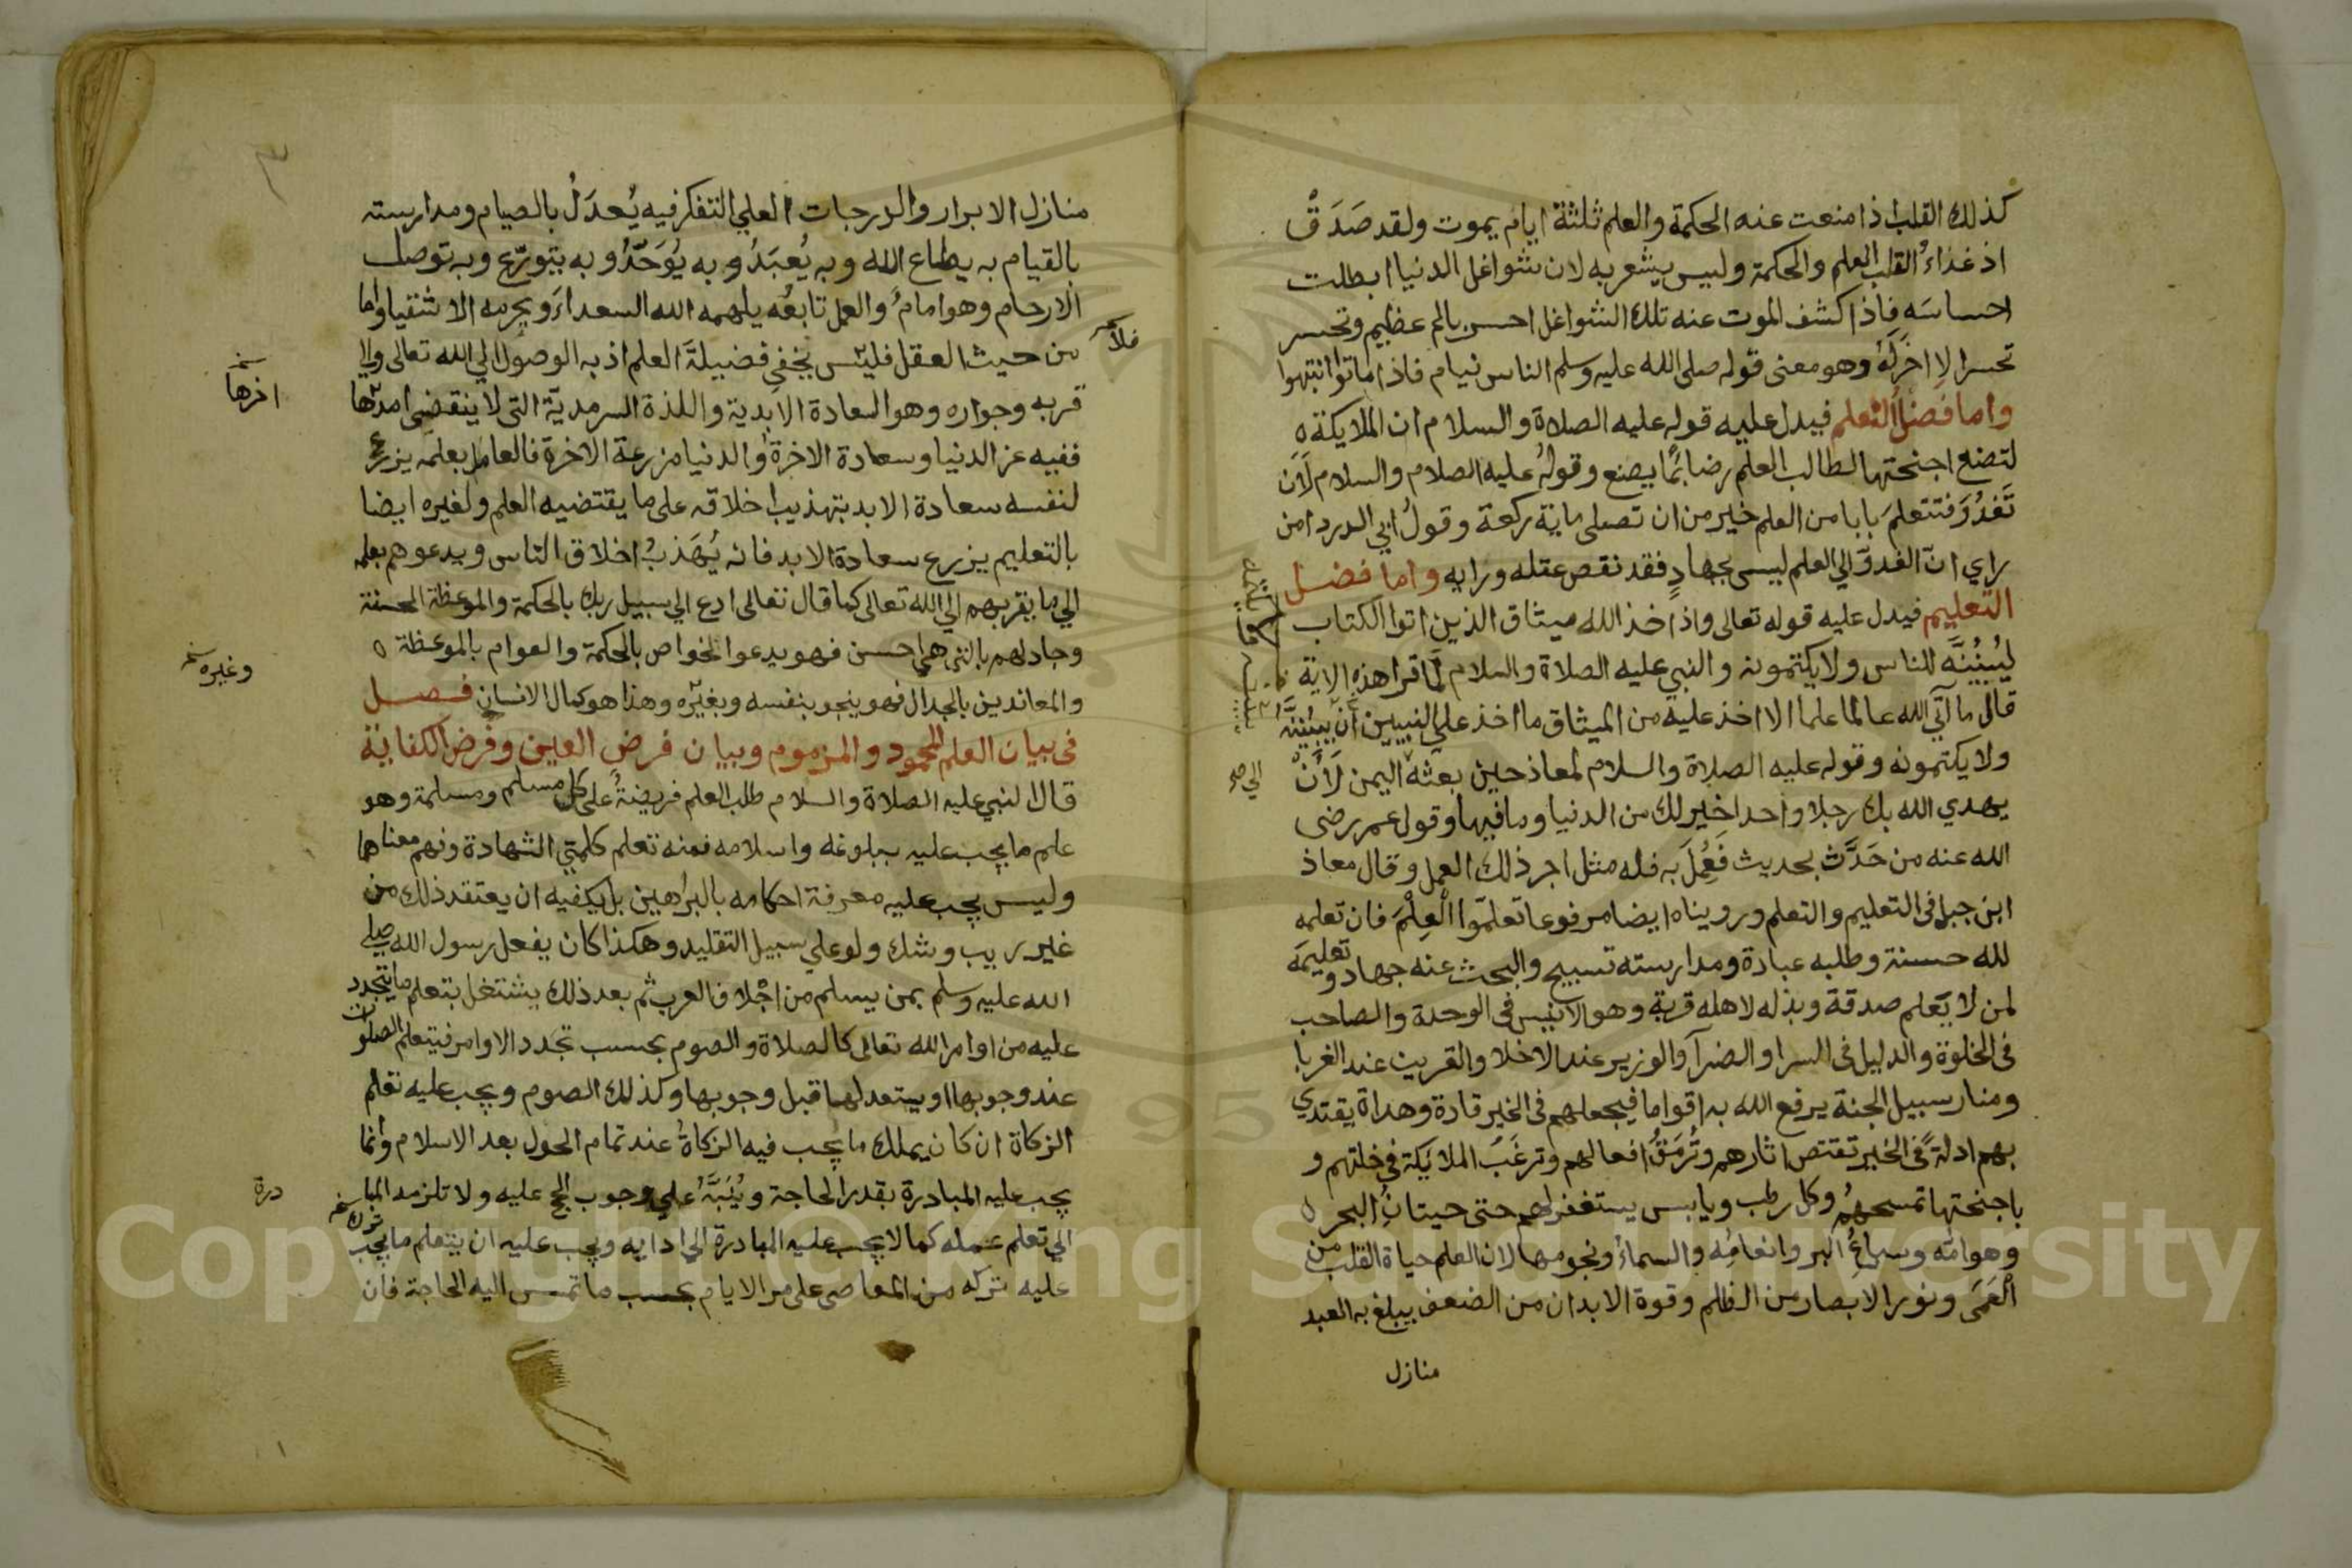 كذلك القلب اذا منعت عنه الحكمة والعلم ثلثة ايام يموت ولقد صَدَقَ
اذ غذاءُ القلب العلم والحكمة وليس يشعر به لان شواغل الدنيا ابطلت
احساسَه فاذا كشف الموت عنه تلك الشواغل احس بالم عظيم وتحسر
تحسرا لا اخرَ لهُ وهو معنى قوله صلى الله عليه وسلم الناس نيام فاذا ماتوا انتبهوا
واما فضل التعلم فيدل عليه قوله عليه الصلاة والسلام ان الملايكة
لتضع اجنحتها لطالب العلم رضا بما يصنع وقولهُ عليه الصلام والسلام لَاَن
تَغدُوَ فتتعلمَ بابا من العلم خير من ان تصلى ماية ركعة وقولُ ابي الدردا من
راي انّ الغدوّ الي العلم ليس بجهادٍ فقد نقص عقله ورايه واما فضل
التعليم فيدل عليه قوله تعالى واذ اخذ الله ميثاق الذين اتوا الكتاب
ليُبيُنُنَّه للناس ولا يكتمونه والنبي عليه الصلاة والسلام لمّا قرا هذه الاية
قال ما آتي الله عالما علما الا اخذ عليه من الميثاق ما اخذ علي النبيين ان يبيُنُنَّهُ
ولا يكتمونه وقوله عليه الصلاة والسلام لمعاذ حين بعثه اليمن لَأَنْ
الي صح
يهدي الله بك رجلا واحدا خير لك من الدنيا وما فيها وقول عمر رضى
الله عنه من حَدَّث بحديث فَعُمِلَ به فله مثل اجر ذلك العمل وقال معاذ
ابن جبل فى التعليم والتعلم ورويناه ايضا مرفوعا تعلمّوا الْعِلْمَ فان تعلمه
لله حسنة وطلبه عبادة ومدارسته تسبيح والبحث عنه جهاد وتعليمَه
لمن لا يَعلم صدقة وبذله لاهله قربة وهو الانيس فى الوحدة والصاحب
فى الخلوة والدليل فى السرا والضرآ والوزير عند الاخلا والقريب عند الغربا
ومنار سبيل الجنة يرفع الله به اقواما فيجعلهم فى الخير قادة وهداة يقتدي
بهم ادلةً فى الخير تقتص اثارهم وتُرمَقُ افعالهم وترغَبُ الملايكة فى خلتهم و
باجنحتها تمسحهُم وكل رطب ويابس يستغفر لهم حتى حيتانُ البحر
وهوامّه وسباعُ البر وانعامُه والسماءُ ونجومها لان العلم حياة القلب من
الْعَمَى ونور الابصار من الظلم وقوة الابدان من الضعف يبلغ به العبد
منازل
منازل الابرار والدرجات العلي التفكر فيه يُعدَلُ بالصيام ومدارسته
بالقيام به يطاع الله وبه يُعبَدُ وبه يُوَحَّدُ وبه يتورّع وبه توصل
الارحام وهو امامُ والعمل تابعُه يلهمه الله السعداءَ ويحرمه الاشقيا واما
من حيث العقل فليس يخفي فضيلةَ العلم اذ به الوصول الي الله تعالى والي
فلا
قربه وجواره وهو السعادة الابدية واللذة السرمديّة التى لا ينقضى امدها
اخرها
ففيه عز الدنيا وسعادة الاخرة والدنيا مزرعة الاخرة فالعامل بعلمه يزرع
لنفسه سعادة الابد بتهذيب اخلاقه على ما يقتضيه العلم ولغيره ايضا
بالتعليم يزرع سعادة الابد فانه يُهَذبُ اخلاق الناس ويدعوهم بعلمه
الي ما يقربهم الي الله تعالى كما قال تعالى ادع الي سبيل ربك بالحكمة والموعظة الحسنة
وجادلهم بالتى هي احسن فهو يدعوا الخواص بالحكمة والعوام بالموعظة
والمعاندين بالجدال فهو ينجو بنفسه وبغيره وهذا هو كمال الانسان فصل
وغيره
فى بيان العلم المحمود والمزموم وبيان فرض العين وفرض الكفاية
قال النبي عليه الصلاة والسلام طلب العلم فريضةُ على كل مسلم ومسلمة وهو
علم ما يجب عليه ببلوغه واسلامه فمنه تعلم كلمتي الشهادة وفهم معناهما
وليس يجب عليه معرفة احكامه بالبراهين بل يكفيه ان يعتقد ذلك من
غير ريب وشك ولو علي سبيل التقليد وهكذا كان يفعل رسول الله صلى
الله عليه وسلم بمن يسلم من اجْلاف العرب ثم بعد ذلك يشتغل بتعلم ما يتجدد
عليه من اوامر الله تعالى كالصلاة والصوم بحسب تجدد الاوامر فيتعلم الصلوات
عند وجوبها او يستعد لها قبل وجوبها وكذلك الصوم ويجب عليه تعلم
الزكاة ان كان يملك ما يجب فيه الزكاةُ عند تمام الحول بعد الاسلام وانما
يجب عليه المبادرة بقدر الحاجة ويُنَبَّهُ علي وجوب الحج عليه ولا تلزمه المبا
درة
الي تعلم عمله كما لا يجب عليه المبادرة الي ادايه ويجب عليه ان يتعلم ما يجب
ترك
عليه تركه من المعاصى على مر الايام بحسب ما تمس اليه الحاجة فان
Copyright © King Saud University
1957